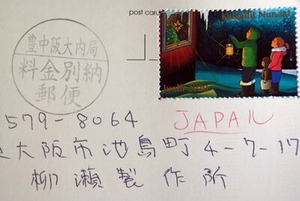 post car
豊中阪大内局
料金別納
郵便
Nunavut
579-8064
JAPAN
大阪市池島町4-7-17
柳瀬製作所